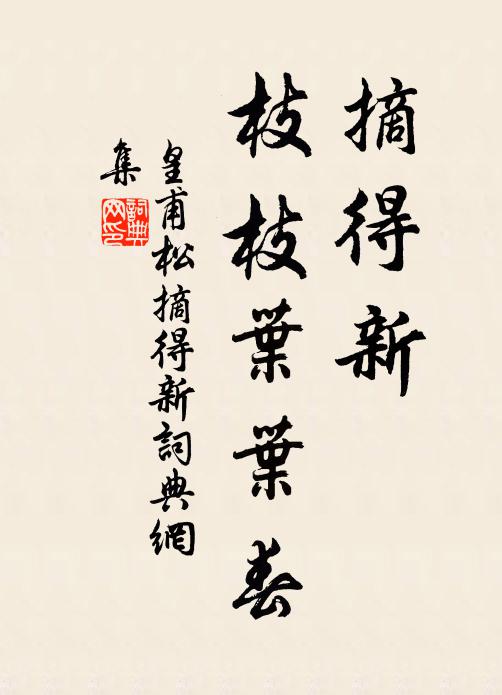 摘得新
枝枝葉葉春
皇甫松摘得新詞典網
集
詞典
网印